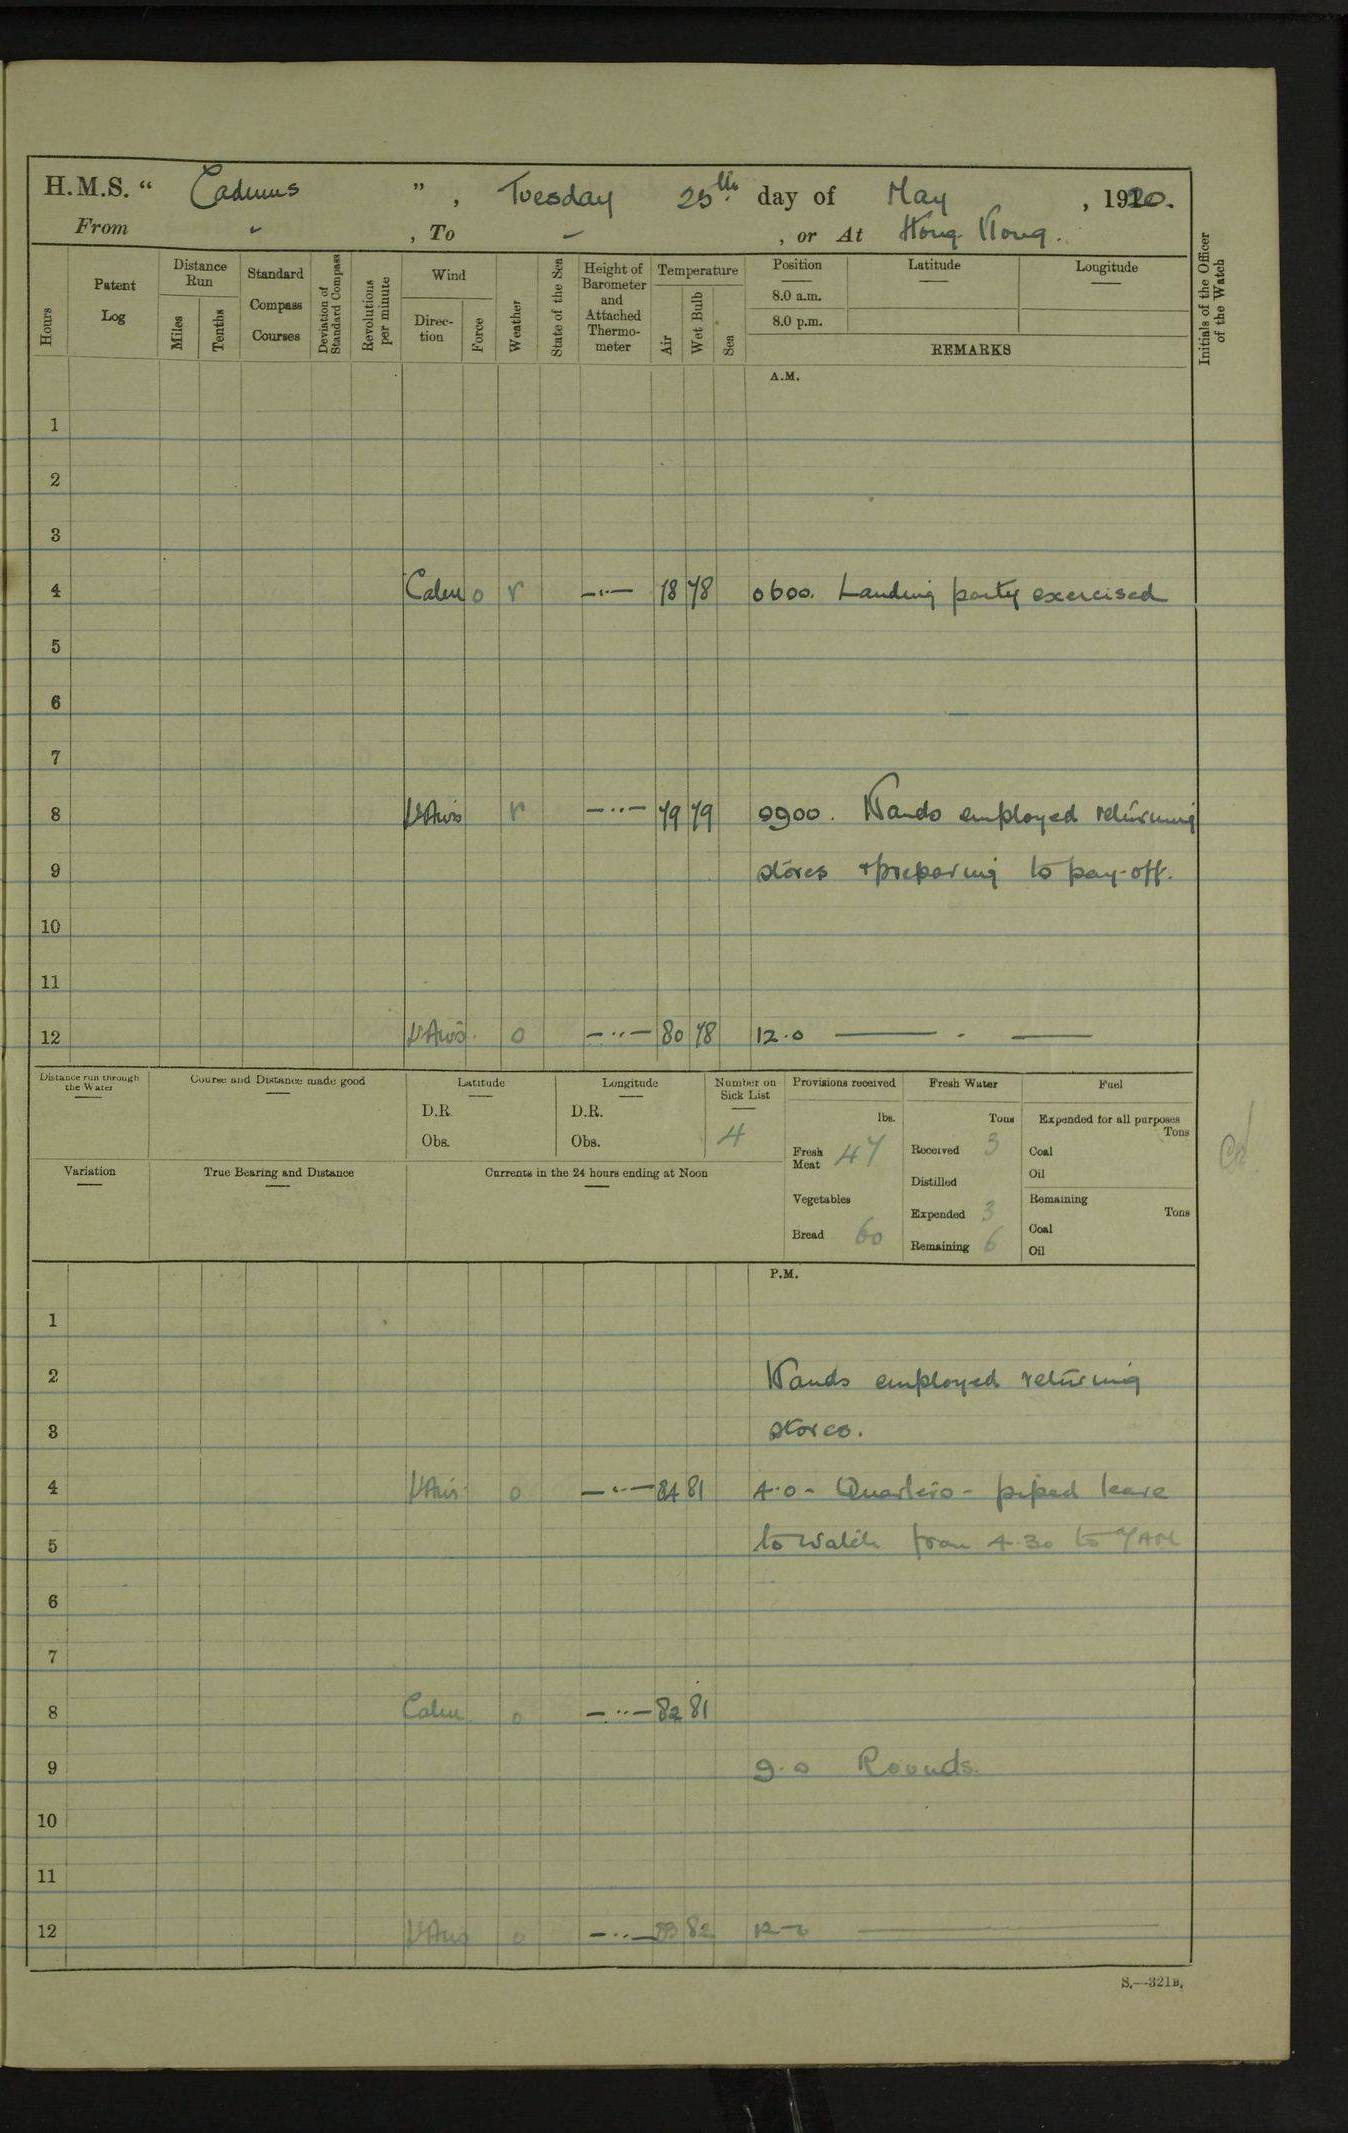 H.M.S. "Cadmus", Tuesday 25th day of May, 1920.
From - , To - , or At Hong Kong.
Hours
Patent Log
Distance Run
Miles
Tenths
Standard Compass Courses
Deviation of Standard Compass
Revolutions per minute
Wind
Direction
Force
Weather
State of the Sea
Height of Barometer and Attached Thermometer
Temperature
Air
Wet Bulb
Sea
Position Latitude Longitude
8.0 a.m.
8.0 p.m.
REMARKS
Initials of the Officer of the Watch
A.M.
1
2
3
4 Calm 0 r -..- 78 78 0600. Landing party exercised
5
6
7
8 r -..- 79 79 0900. Hands employed returning
9 stores & preparing to pay-off.
10
11
12 o -..- 80 78 12.0 —— - ——
Distance run through the Water
Course and Distance made good
Latitude
D.R.
Obs.
Longitude
D.R.
Obs.
Number on Sick List
4
Provisions received
lbs.
Fresh Meat 47
Vegetables
Bread 60
Fresh Water
Tons
Received 3
Distilled
Expended 3
Remaining 6
Fuel
Expended for all purposes
Tons
Coal
Oil
Remaining
Tons
Coal
Oil
Variation
True Bearing and Distance
Currents in the 24 hours ending at Noon
P.M.
1
2 Hands employed returning
3 stores.
4 o -..- 84 81 4.0 - Quarters - piped leave
5 to watch from 4.30 to 7AM
6
7
8 Calm o -..- 82 81
9 9.0 Rounds.
10
11
12 o -..- 82 12-0 ——
S.—321B.